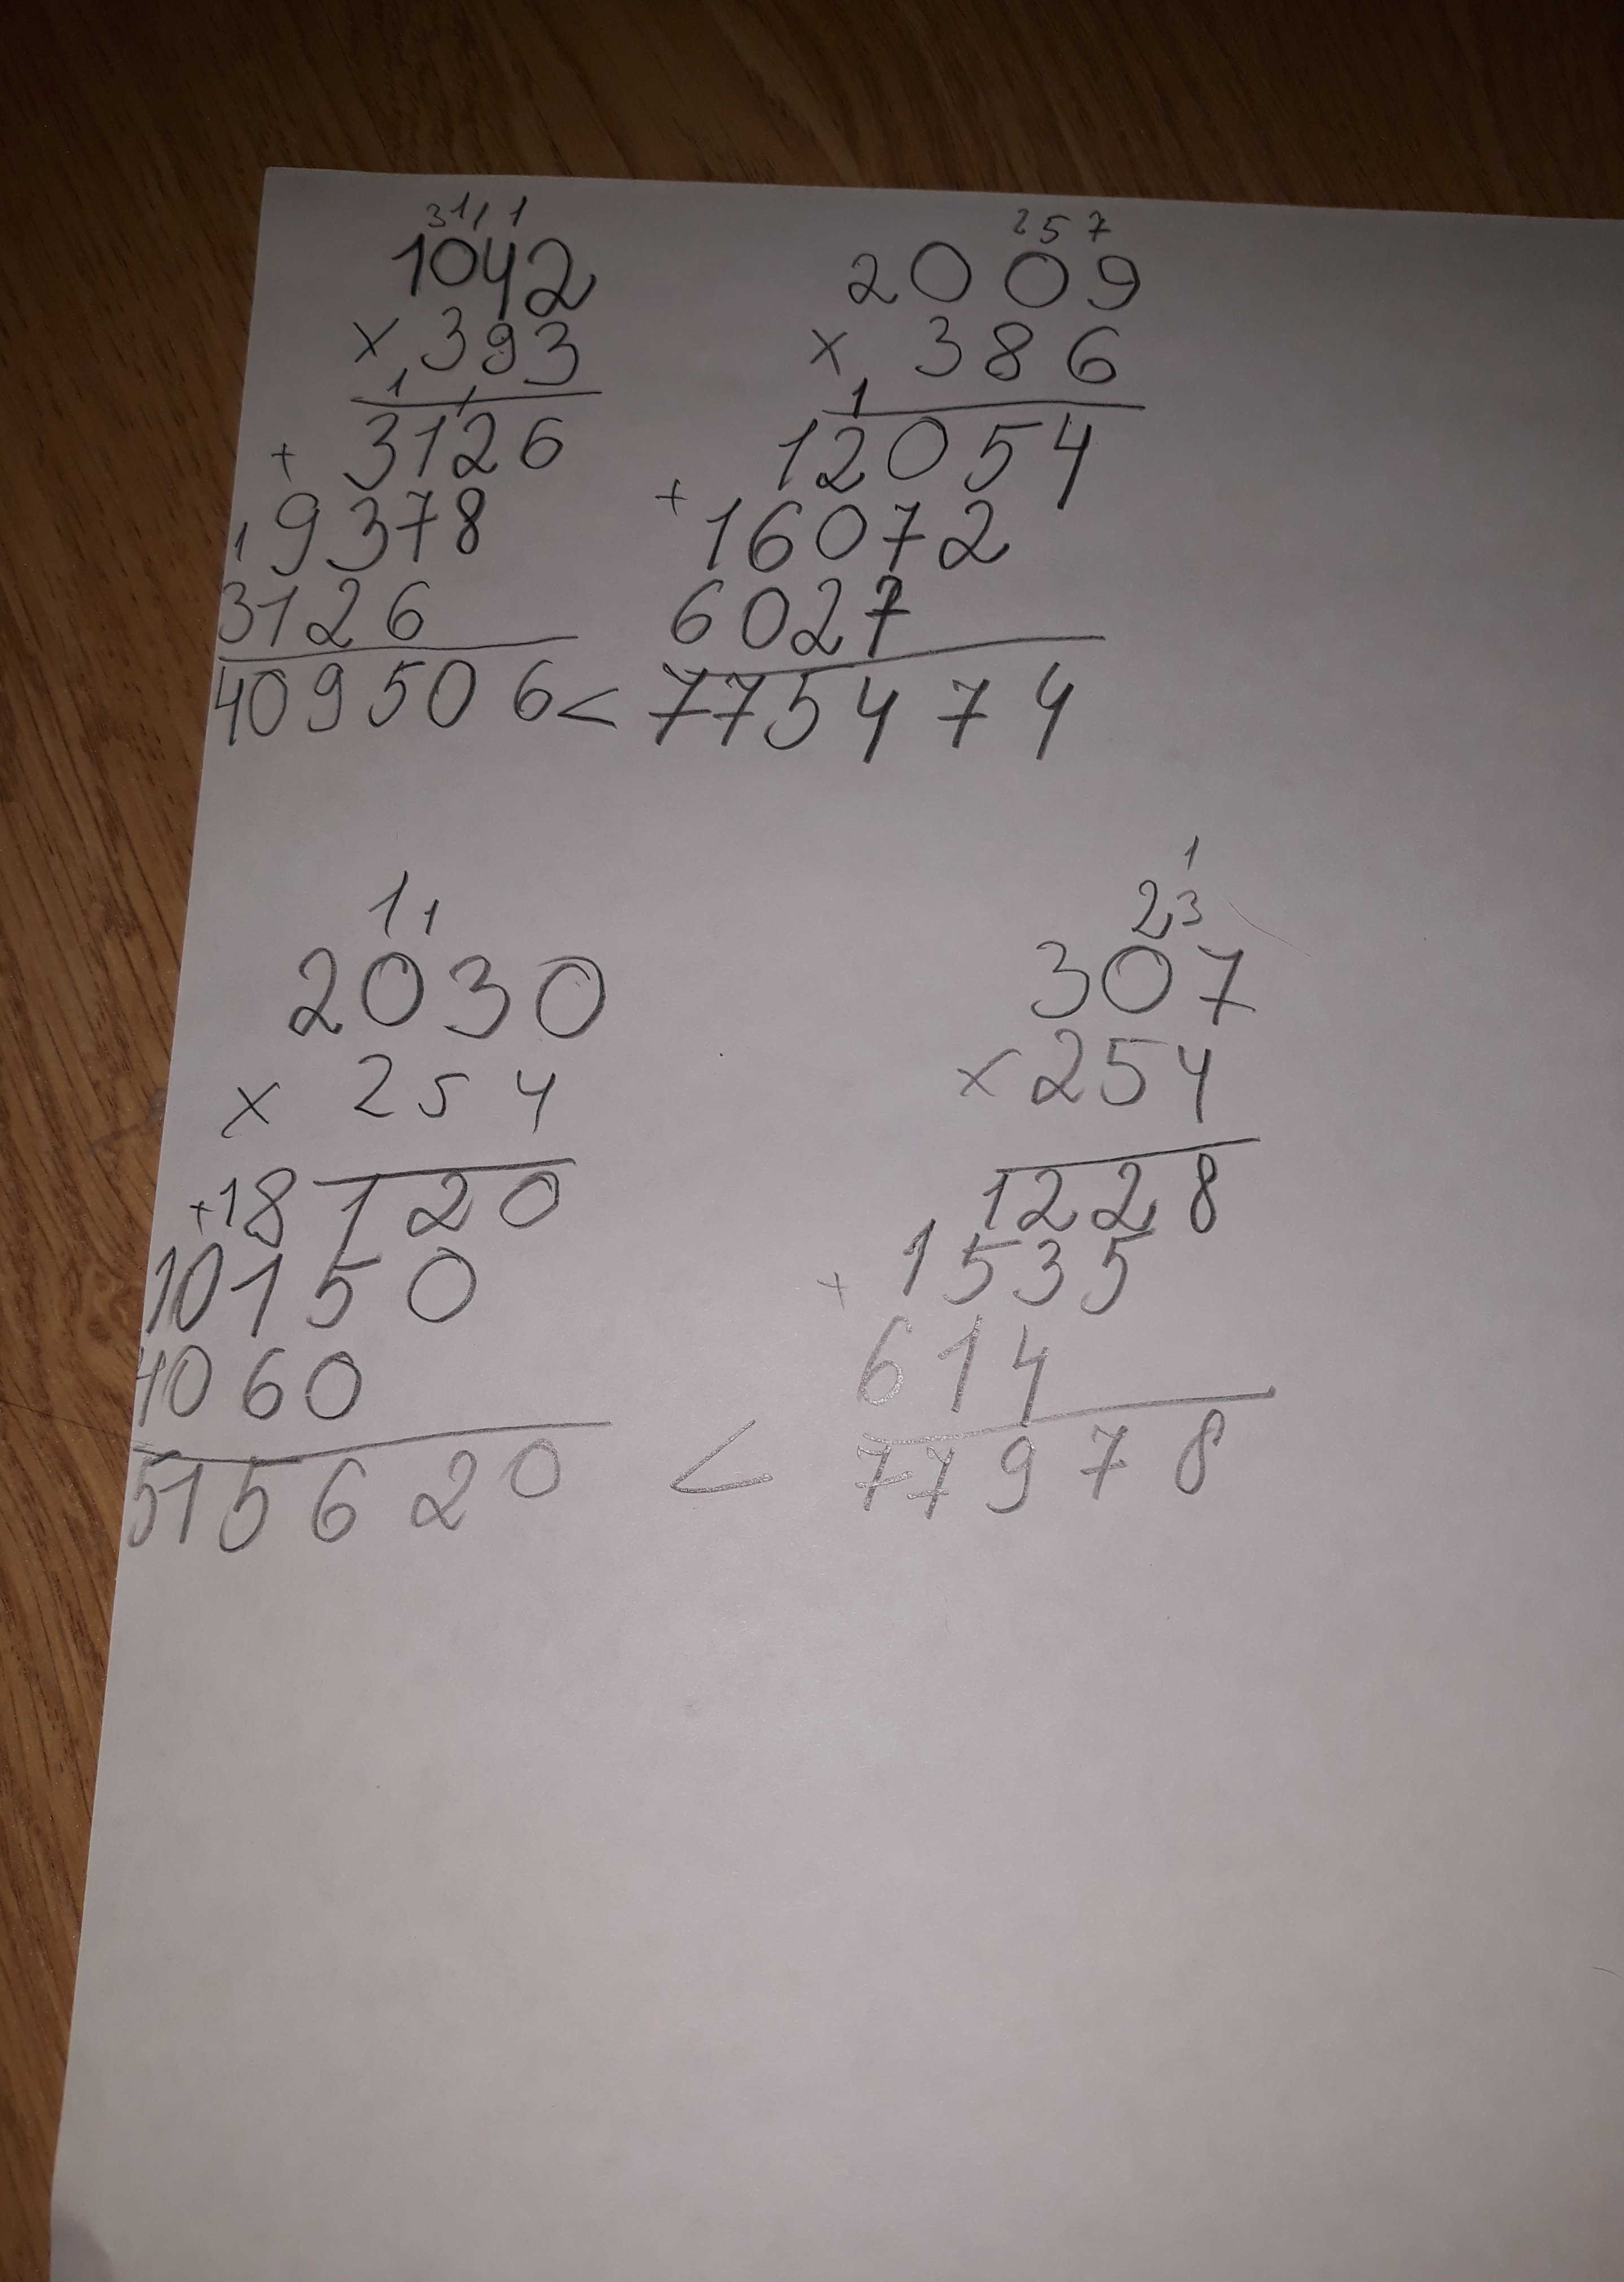 3 1 1 1
1042
× 393
1 1
3126
+
1 9378
3126
409506 < 775474
2 5 7
2009
× 386
1
12054
+ 16072
6027
1 1
2030
× 254
+18120
10150
4060
515620 < 77978
1
23
307
× 254
1228
+ 1535
614